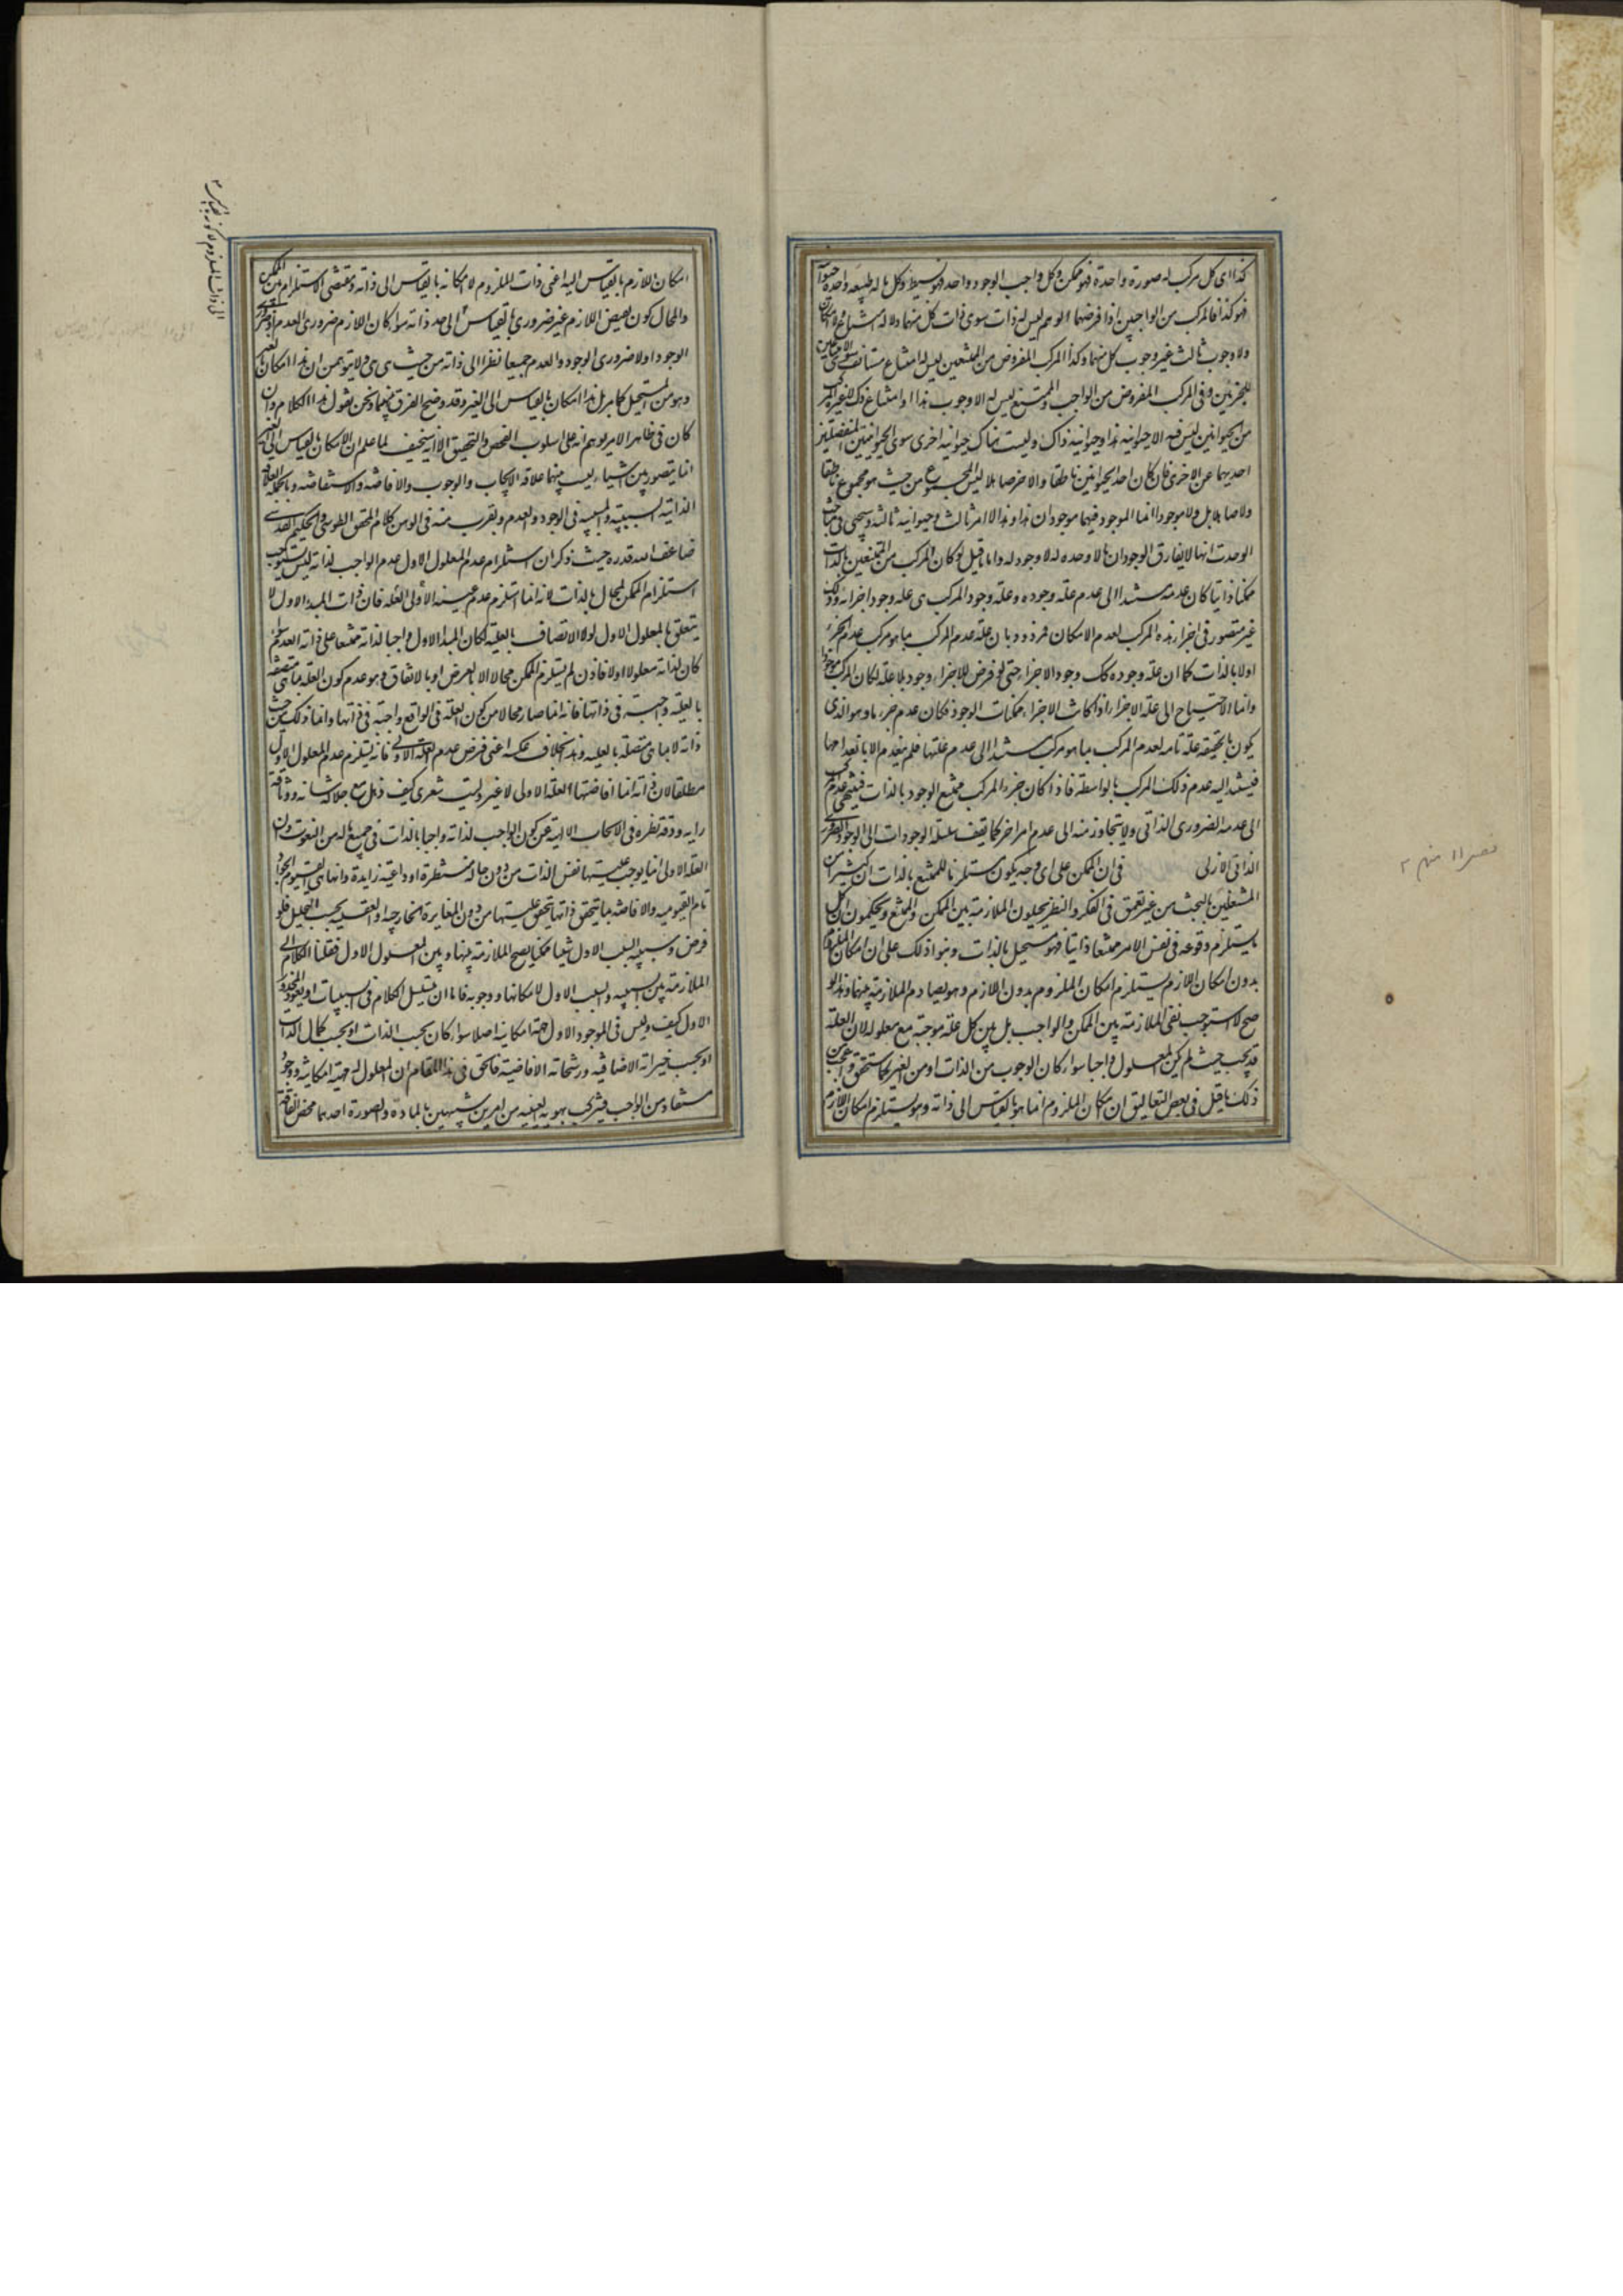 كذا اى كل مركب له صورة واحدة فهو ممكن وكل واجب الوجود واحد فهو بسيط وكل ما له طبيعة واحدة
فهو كذا فالمركب من الواجبين اذا فرضهما الوهم ليس له ذات سوى ذات كل منهما ولا له امتناع ولا امكان
ولا وجوب ثالث غير وجوب كل منهما وكذا المركب المفروض من الممتنعين ليس له امتناع مستانف سوى الامتناعين
للجزئين وفى المركب المفروض من الواجب والممتنع ليس له الا وجوب هذا او امتناع ذاك لا غير
من الحيوانين ليس فيه الا حيوانية هذا وحيوانية ذاك وليست هناك حيوانية اخرى سوى الحيوانيتين المنفصلتين
احديهما عن الاخرى فان كان احد الحيوانين ناطقا والاخر صاهلا ليس المجموع من حيث هو مجموع ناطقا
ولا صاهلا بل ولا موجودا انما الموجود فيهما موجودان هذا وهذا لا امر ثالث وحيوانية ثالثة وسيجئ فى مباحث
الوحدة انها لا يفارق الوجود ان ما لا وحده له لا وجود له واما ما قيل لو كان المركب من الممتنعين بالذات
ممكنا ذاتيا كان عدمه مستندا الى عدم علة وجوده وعلة وجود المركب هى علة وجود اجزائه وذلك
غير متصور فى اجزاء هذه المركب لعدم الامكان فمردود بان علة عدم المركب بما هو مركب عدم الجزء
اولا بالذات كما ان علة وجوده كك وجود الاجزاء حتى لو فرض للاجزاء وجود بلا علة لكان المركب موجودا
وانما الاحتياج الى علة الاجزاء اذا كانت الاجزاء ممكنات الوجود فكان عدم جزء ما وهو الذى
يكون بالحقيقة علة تامة لعدم المركب بما هو مركب مستندا الى عدم علتها فلم ينعدم الا بانعدامها
فيستند اليه عدم ذلك المركب بالواسطة فاذا كان جزء المركب ممتنع الوجود بالذات فينتهى عدم المركب
الى عدمه الضرورى الذاتى ولا يتجاوز منه الى عدم امر اخر كما يقف سلسلة الوجودات الى الوجود الضرورى
الذاتى الازلى فى ان الممكن على اى وجه يكون مستلزما للممتنع بالذات ان كثيرا من
المشتغلين بالبحث من غير تعمق فى الفكر والنظر يحيلون الملازمة بين الممكن والممتنع ويحكمون ان كل
ما يستلزم وقوعه فى نفس الامر ممتنعا ذاتيا فهو مستحيل بالذات وبنوا ذلك على ان امكان الملزوم
بدون امكان اللازم يستلزم امكان الملزوم بدون اللازم وهو يصادم الملازمة بينهما وهذا لو
صح لاستوجب نفى الملازمة بين الممكن والواجب بل بين كل علة موجبة مع معلوله لان العلة
قد يجب حيث لم يكن المعلول واجبا سواء كان الوجوب من الذات او من الغير كما ستحقق واعجب من
ذلك ما قيل فى بعض التعاليق ان امكان الملزوم انما هو بالقياس الى ذاته وهو يستلزم امكان اللازم
امكان اللازم بالقياس اليه اعنى ذات الملزوم لا امكانه بالقياس الى ذاته ومقتضى الاستلزام بين الممكن
والمحال كون نقيض اللازم غير ضرورى بالقياس الى حد ذاته سواء كان اللازم ضرورى العدم او ضرورى
الوجود اولا ضرورى الوجود والعدم جميعا نظرا الى ذاته من حيث هى هى ولا يتوهمن ان هذا امكان بالغير
وهو من المستحيل كما مر بل هذا امكان بالقياس الى الغير وقد وضح الفرق بينهما ونحن نقول هذا الكلام وان
كان فى ظاهر الامر يوهم انه على اسلوب الفحص والتحقيق الا انه سخيف لما علم ان الامكان بالقياس الى الغير
انما يتصور بين اشياء ليست بينها علاقة الايجاب والوجوب والافاضة والاستفاضة وبالجملة العلاقة
الذاتية السببية والمسببية فى الوجود والعدم ويقرب منه فى الوهن كلام المحقق الطوسى والحكيم القدسى
ضاعف الله قدره حيث ذكر ان استلزام عدم المعلول الاول عدم الواجب لذاته ليس يستوجب
استلزام الممكن لمحال بالذات لانه انما استلزم عدم علية العلة الاولى فان ذات المبدء الاول لا
يتعلق بالمعلول الاول لولا الاتصاف بالعلية لكان المبدا الاول واجبا لذاته ممتنعا على ذاته العدم سواء
كان لذاته معلولا اولا فاذن لم يستلزم الممكن محالا الا بالعرض او بالاتفاق وهو عدم كون العلة بما هى متصفة
بالعلية واجبة فى ذاتها فانه انما صار محالا من كون العلة فى الواقع واجبة فى ذاتها وانما ذلك من حيث
ذاته لا بما هى متصفة بالعلية وهذا بخلاف عكسه اعنى فرض عدم العلة الاولى فانه يستلزم عدم المعلول الاول
مطلقا لان ذاته انما افاضتها العلة الاولى لا غير وليت شعرى كيف ذهل مع جلالة شانه ووثاقة
رايه ودقة نظره فى الابحاث الالهية عن كون الواجب لذاته واجبا بالذات فى جميع ما له من النعوت وان
العلة الاولى انما يوجب عليتها نفس الذات من دون حالة منتظرة او داعية زايدة وانها هى القيوم الجواد
تام القيومية والافاضة بما يتحقق ذاتها يتحقق عليتها من دون المغايرة الخارجية او العقلية بحسب التحليل فلو
فرض وسببية السبب الاول شيئا ممكنا يصح الملازمة بينها وبين المعلول الاول فنقلنا الكلام الى
الملازمة بين السببية والسبب الاول لامكانها ووجوبه فاما ان يتسلسل الكلام فى السببيات او يعود المحذور
الاول كيف وليس فى الموجود الاول جهة امكانية اصلا سواء كان بحسب الذات او بحسب كمال الذات
او بحسب خيراته الاضافية ورشحاته الافاضية فالحق فى هذا المقام ان المعلول له جهة امكانية ووجود
مستفاد من الواجب فتركب هويته العينية من امرين شبيهين بالمادة والصورة احدهما محض الفاقة